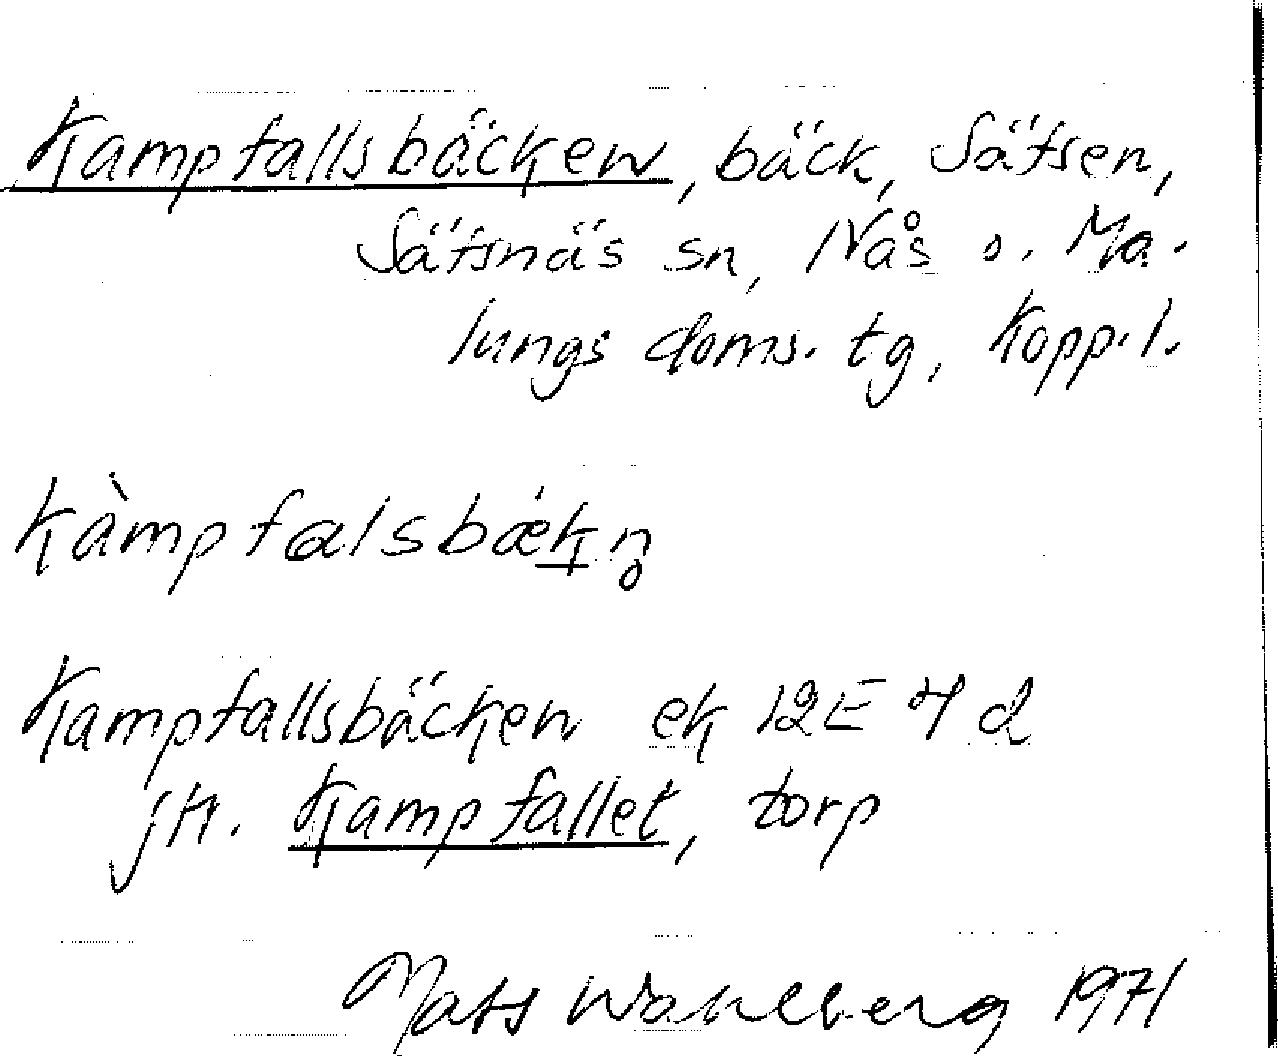 Kampfallsbäcken, bäck, Sätsen,
Sätsnäs sn, Nås o. Ma-
lungs doms. tg, Kopp.l.
kàmpfalsbækn̥
Kampfallsbäcken ek 12E 7d
jfr. Kampfallet, torp
Mats Wahlberg 1971